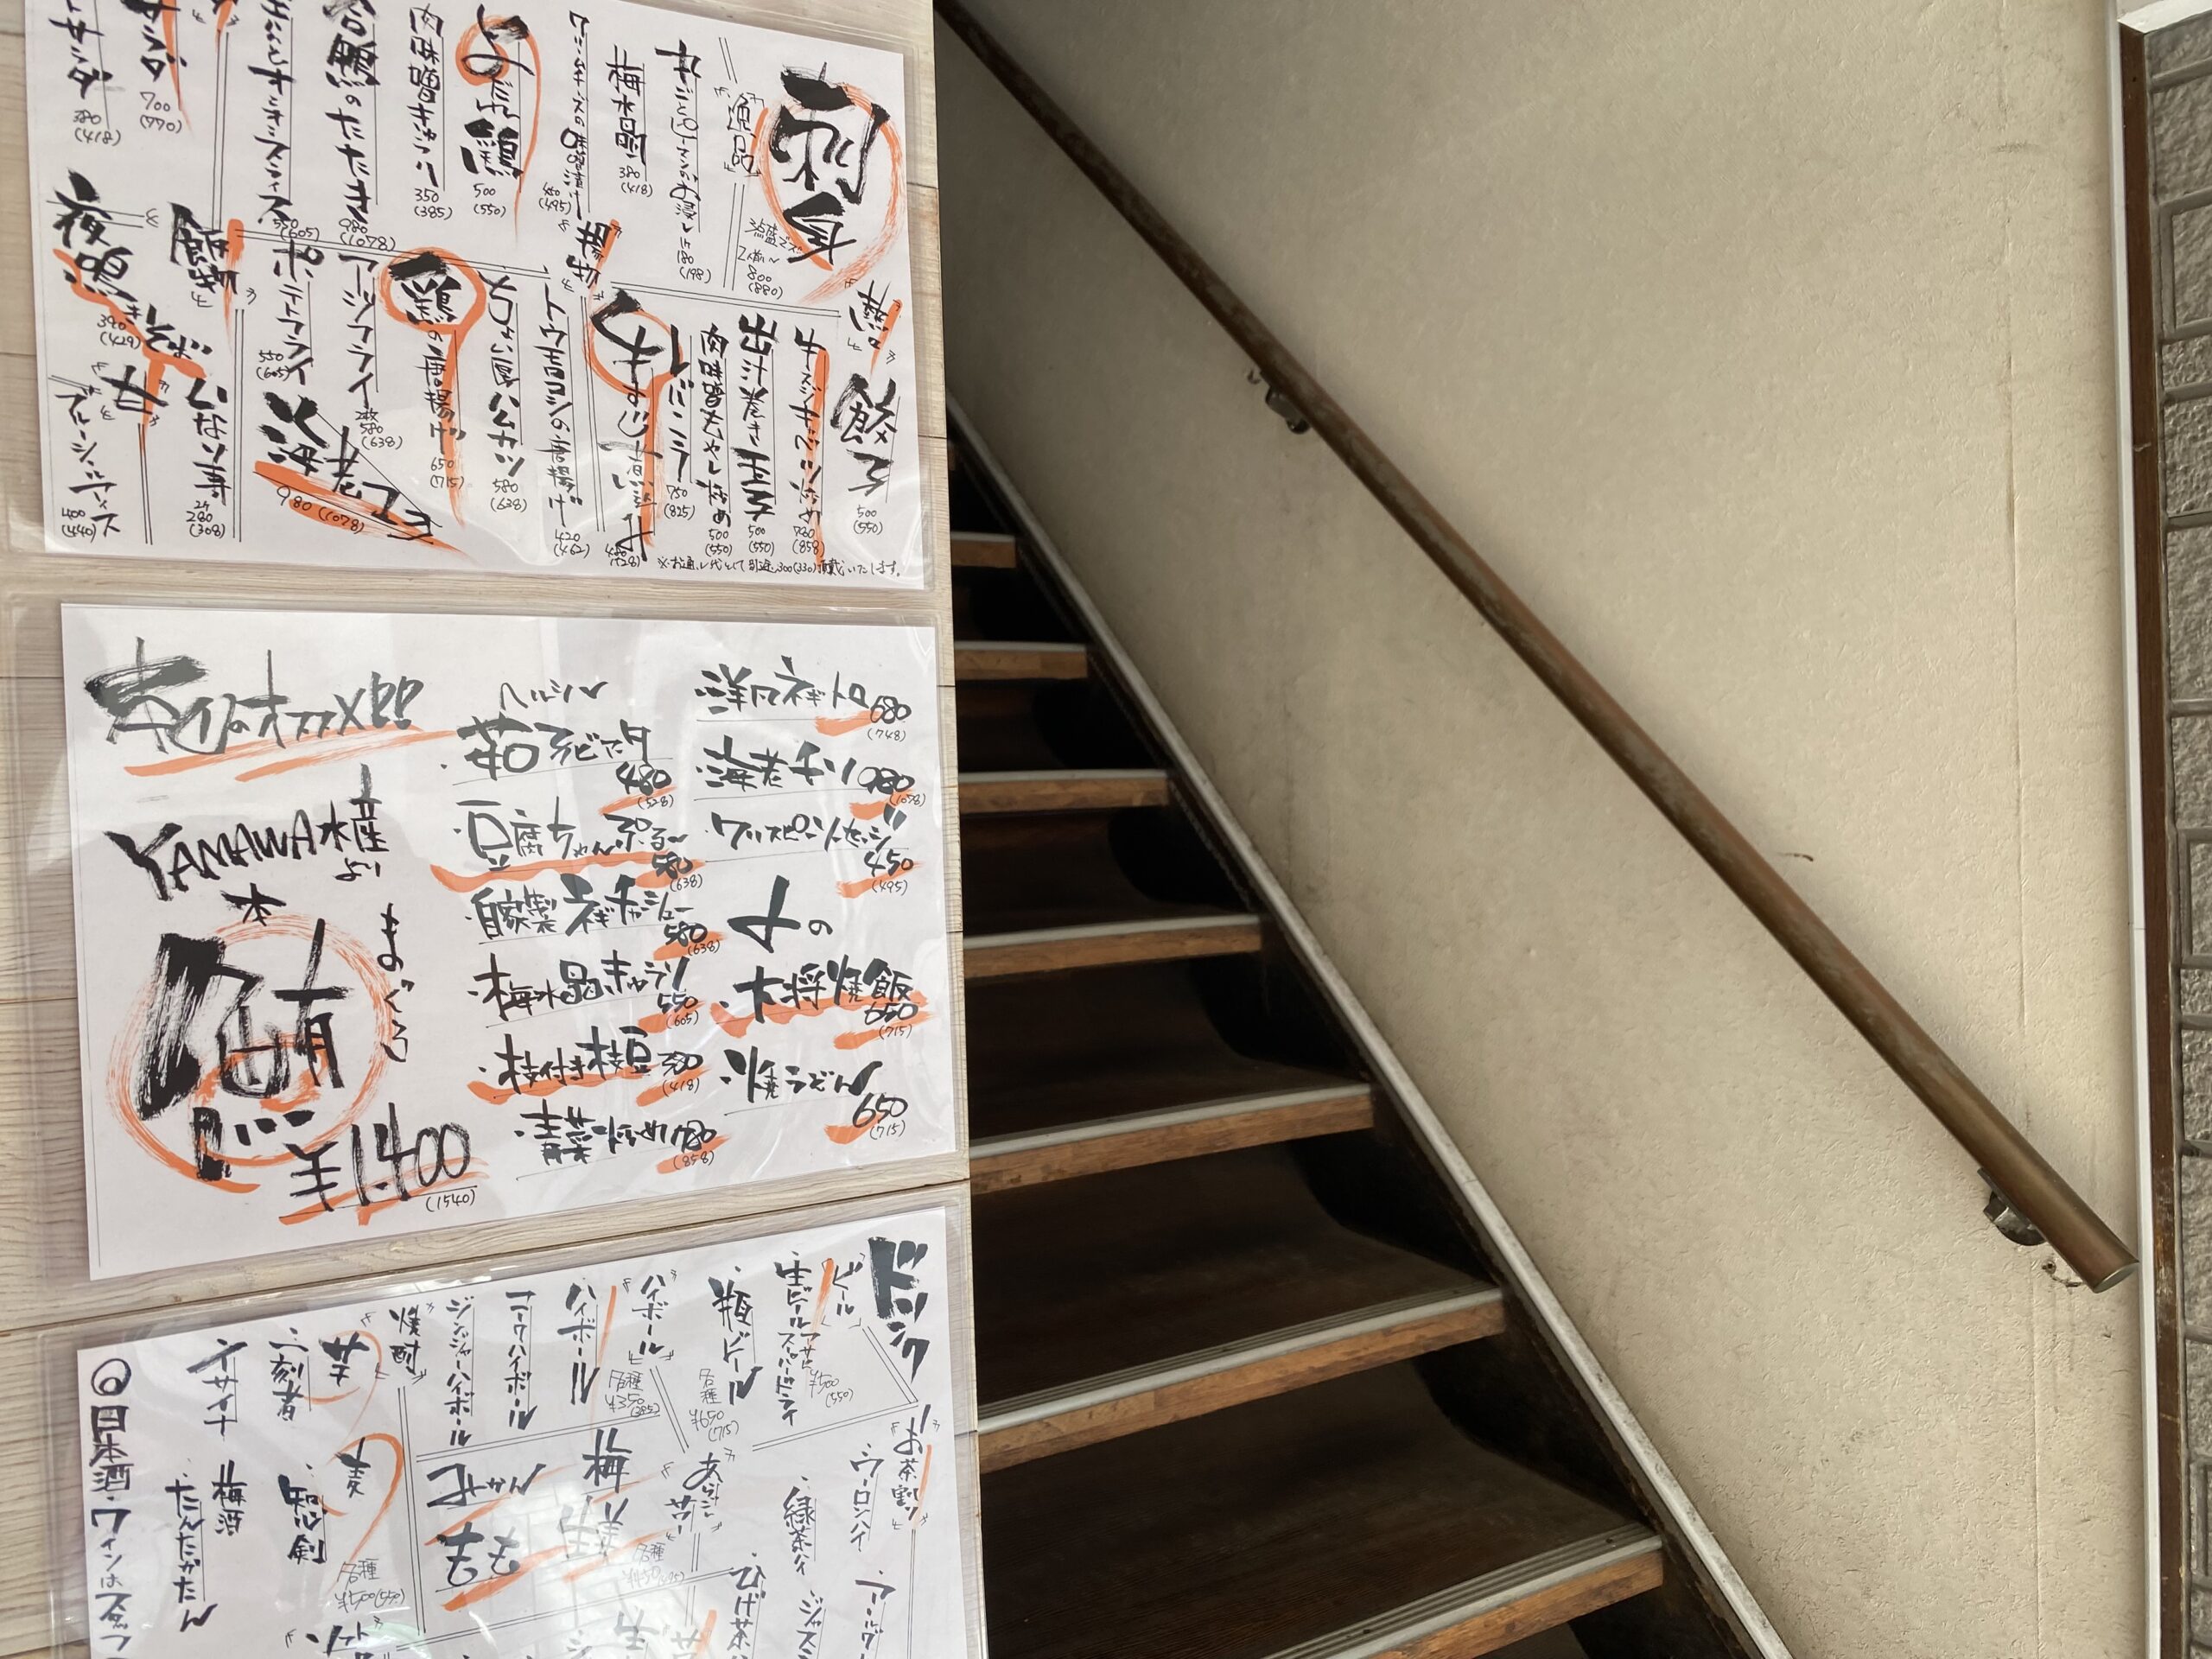 刺身
逸品
丸ごとピーマンのお浸し
1ケ
180
(198)
梅水晶
380
(418)
クリームチーズの味噌漬け
450
(495)
よだれ鶏
500
(550)
肉味噌キャベツ
350
(385)
合鴨のたたき
980
(1078)
オニオンスライス
550
(605)
700
(770)
サラダ
380
(418)
2人前〜
800
(880)
餃子
500
(550)
牛スジキムチ炒め
780
(858)
出汁巻き玉子
500
(550)
肉味噌もやし炒め
500
(550)
レバニラ
750
(825)
牛すじ煮込み
480
(528)
揚物
トウモロコシの唐揚げ
420
(462)
ちょい厚ハムカツ
580
(638)
鶏の唐揚げ
650
(715)
アージフライ
2枚
580
(638)
ポテトフライ
550
(605)
海老マヨ
980 (1078)
飯物
いなり寿
2ケ
280
(308)
夜鳴きそば
390
(429)
甘
400
(440)
※お通し代として別途300(330)頂戴いたします。
本日のオススメ!!
YAMAWA水産より
本
鮪
まぐろ
¥1,400
(1540)
ヘルシー
480
(528)
・豆腐ちゃんぷる〜
580
(638)
・自家製ネギチャーシュー
580
(638)
・梅水晶きゅうり
550
(605)
・枝付き枝豆 380
(418)
・青菜炒め 780
(858)
・洋風ネギトロ 680
(748)
・海老チリ 980
(1078)
・クリスピーソーセージ
450
(495)
・大将焼飯
650
(715)
・焼うどん
650
(715)
ドリンク
ビール
・生ビール アサヒスーパードライ
¥500
(550)
・瓶ビール
各種
¥650
(715)
ハイボール
・ハイボール
各種
¥350
(385)
・コークハイボール
・ジンジャーハイボール
焼酎
芋
・二刻者
麦
・知心剣
各種
¥500(550)
・梅酒
・たんたかたん
お茶割り
・ウーロンハイ
・緑茶ハイ
梅
生姜
みかん
もも
各種
◎日本酒・ワインはスタッフ